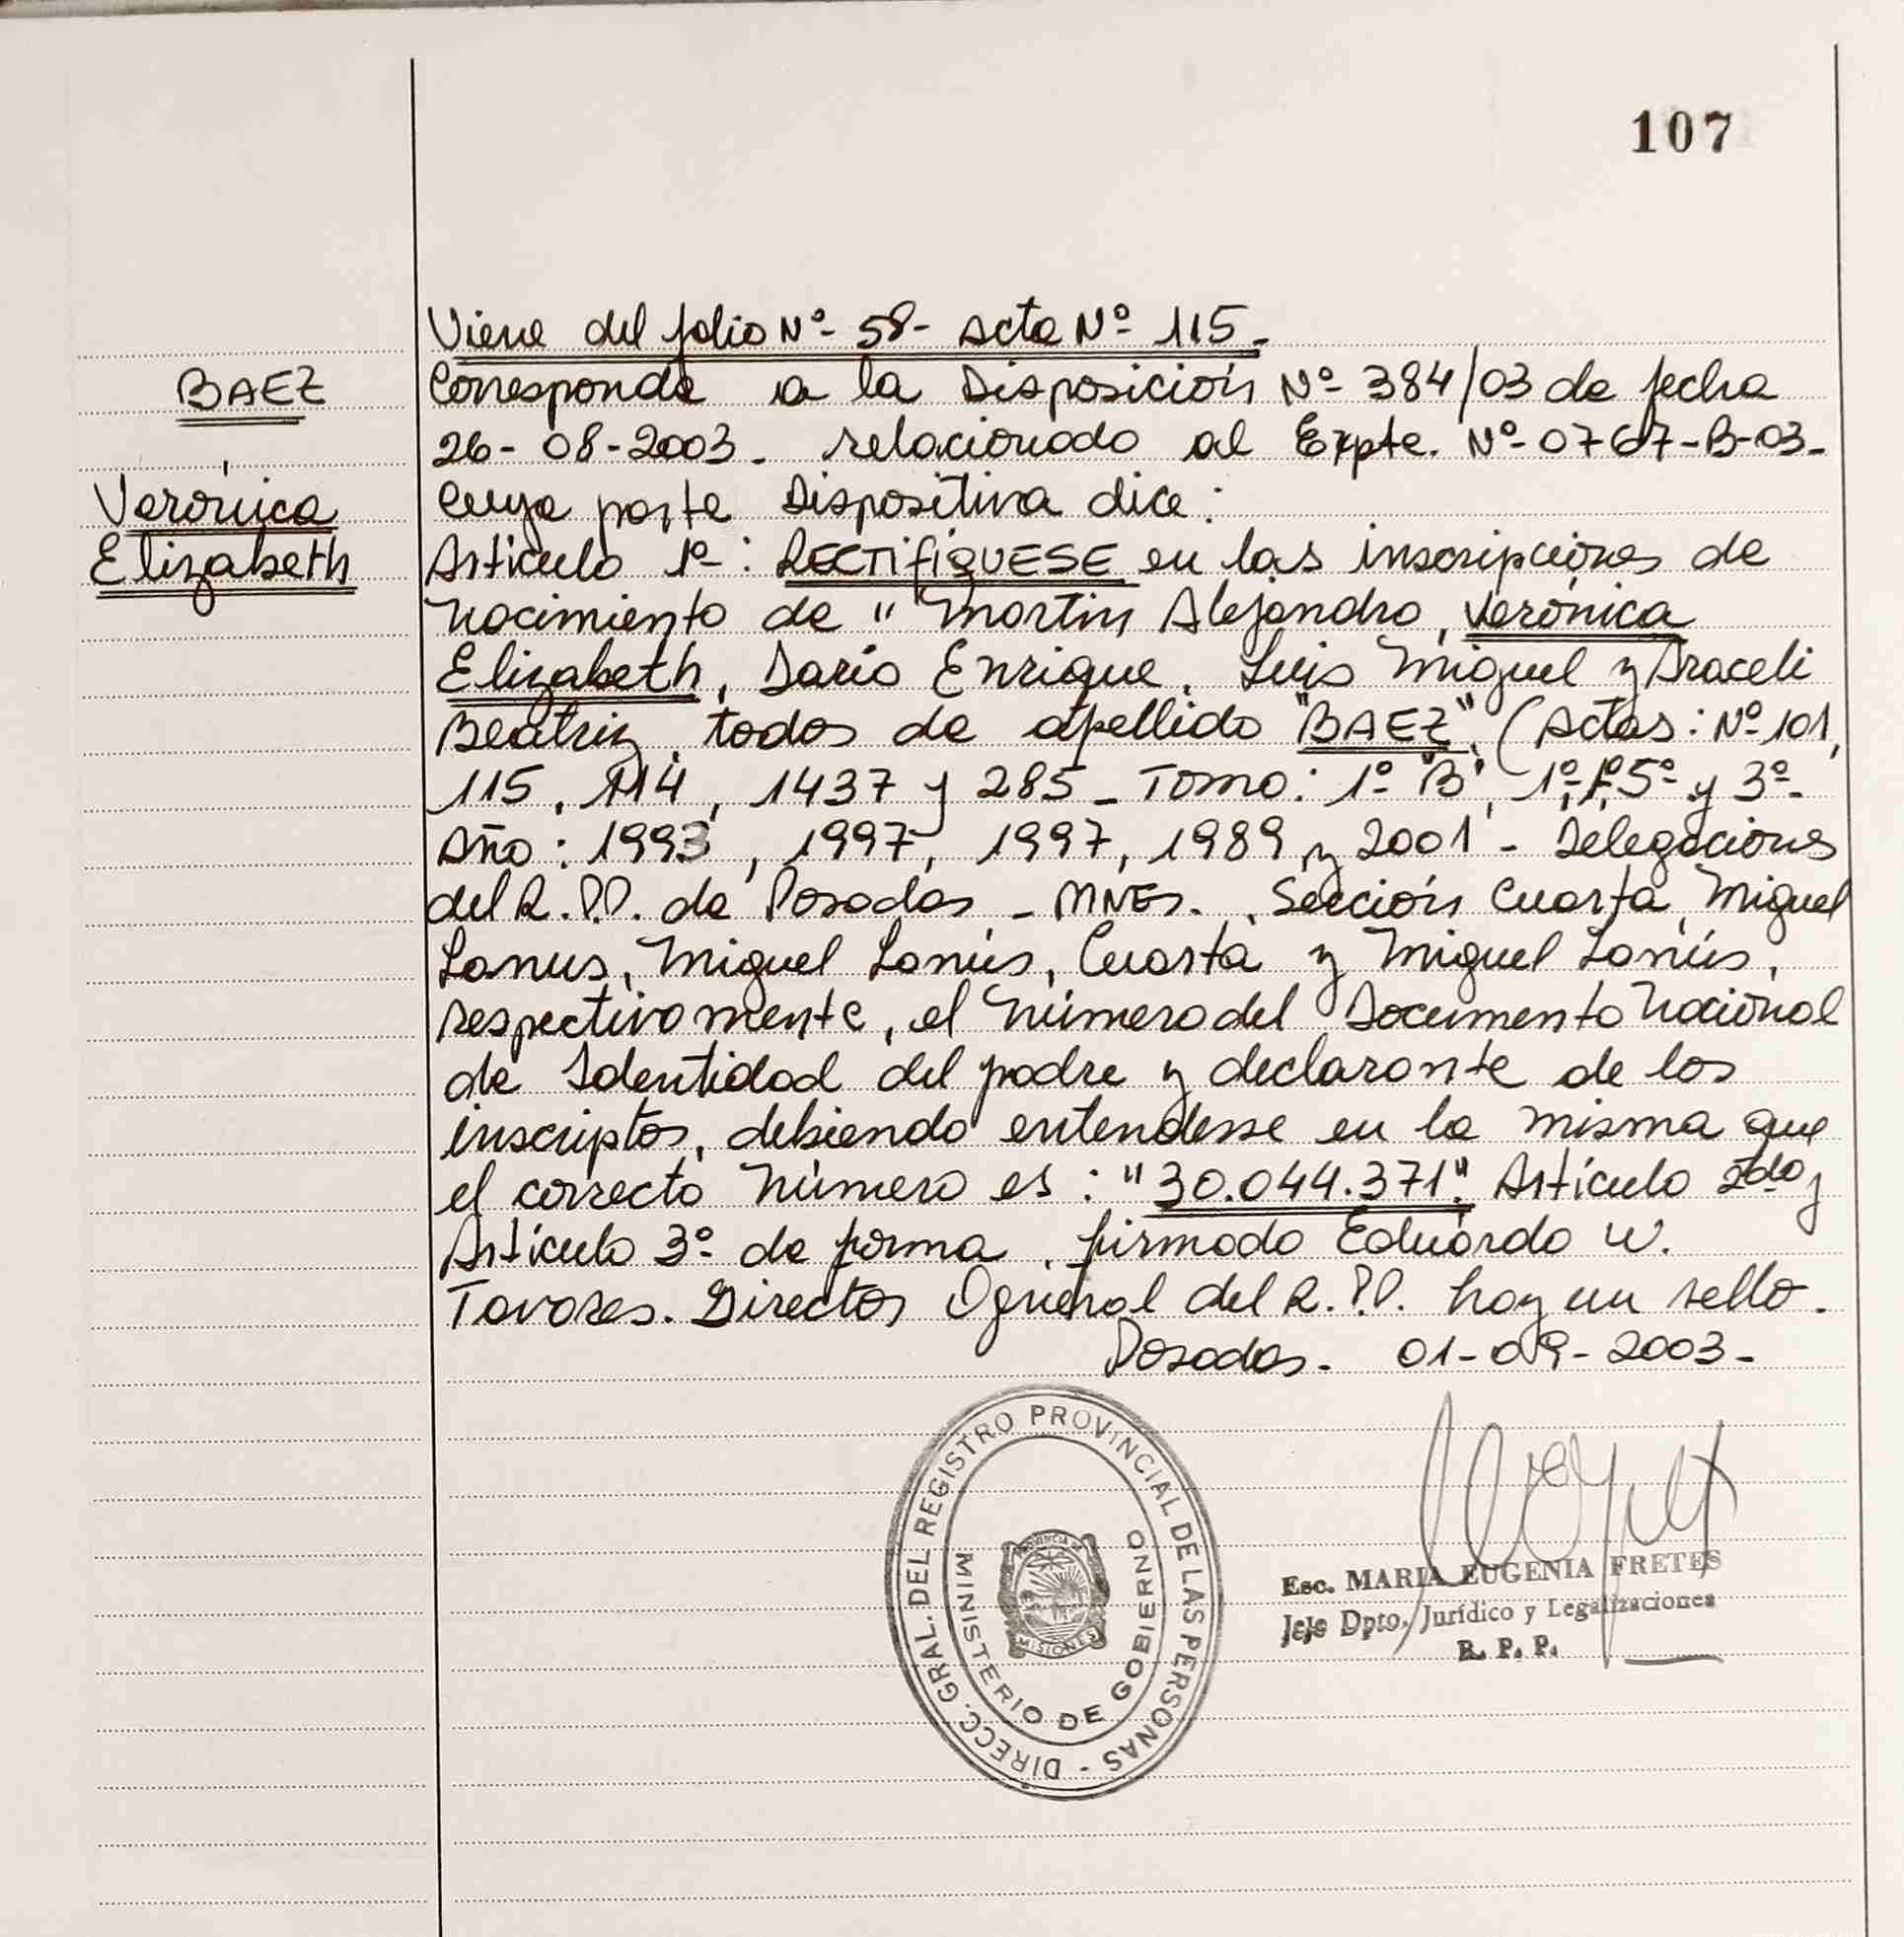 107
Viene del folio Nº- 58- Acta Nº 115-
BAEZ
Corresponde a la Disposición Nº 384/03 de fecha
26-08-2003- relacionado al Expte. Nº-0767-B-03-
Verónica
Cuya parte Dispositiva dice:
Elizabeth
Artículo 1º-: RECTIFIQUESE en las inscripciones de
nacimiento de "Martín Alejandro, Verónica
Elizabeth, Darío Enrique, Luis Miguel y Araceli
Beatriz, todos de apellido "BAEZ", (Actas: Nº 101,
115, 114, 1437 y 285- Tomo: 1º "B", 1º, 1º, 5º y 3º-
Año: 1993, 1997, 1997, 1989 y 2001- Delegaciones
del R.P.P. de Posadas - MNES., Sección Cuarta, Miguel
Lanus, Miguel Lanús, Cuarta y Miguel Lanús,
respectivamente, el número del Documento Nacional
de Identidad del padre y declarante de los
inscriptos, debiendo entenderse en la misma que
el correcto número es: "30.044.371". Artículo 2do y
Artículo 3º de forma. firmado Eduardo W.
Tavares. Director General del R.P.P. hay un sello.
Posadas- 01-09-2003-
DIRECC. GRAL. DEL REGISTRO PROVINCIAL DE LAS PERSONAS -
MINISTERIO DE GOBIERNO
PROVINCIA DE
MISIONES
Esc. MARIA EUGENIA FRETES
Jefe Dpto. Jurídico y Legalizaciones
R. P. P.